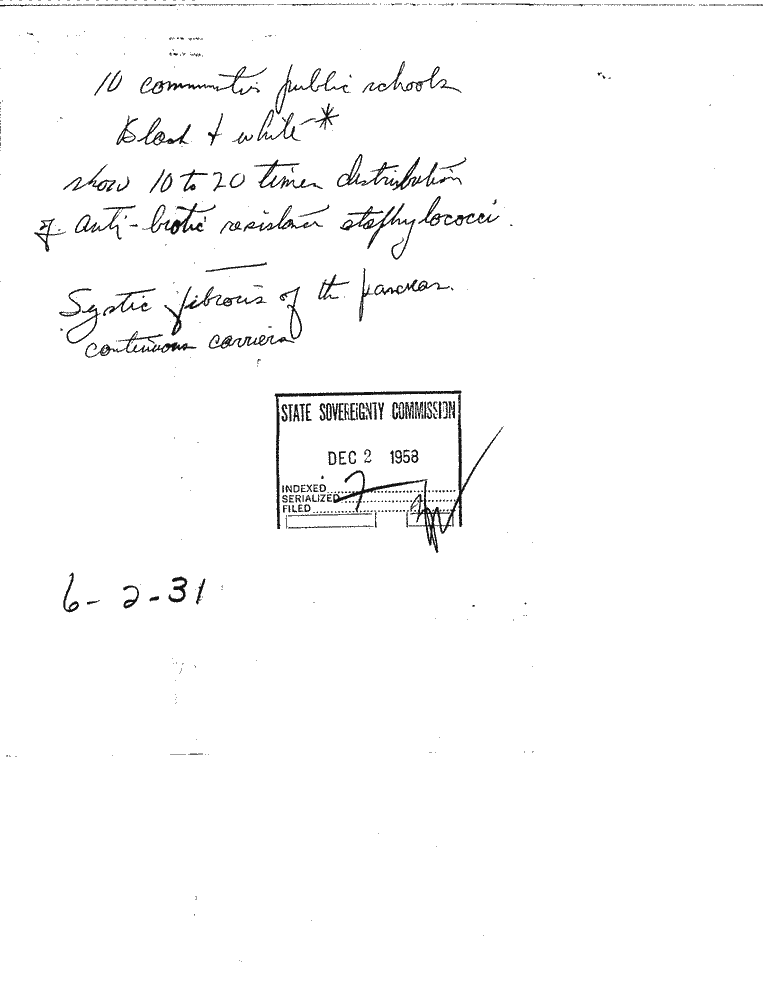 10 communities public schools
Black & white *
show 10 to 20 times distribution
of anti-biotic resistant staphylococci.
Systic fibrosis of the pancreas.
continuous carriers
STATE SOVEREIGNTY COMMISSION
DEC 2 1958
INDEXED
SERIALIZED
FILED
6-2-31